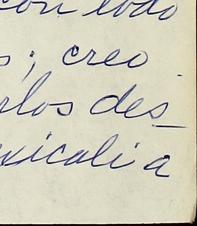 con todo
s; creo
rlos des-
xicali a